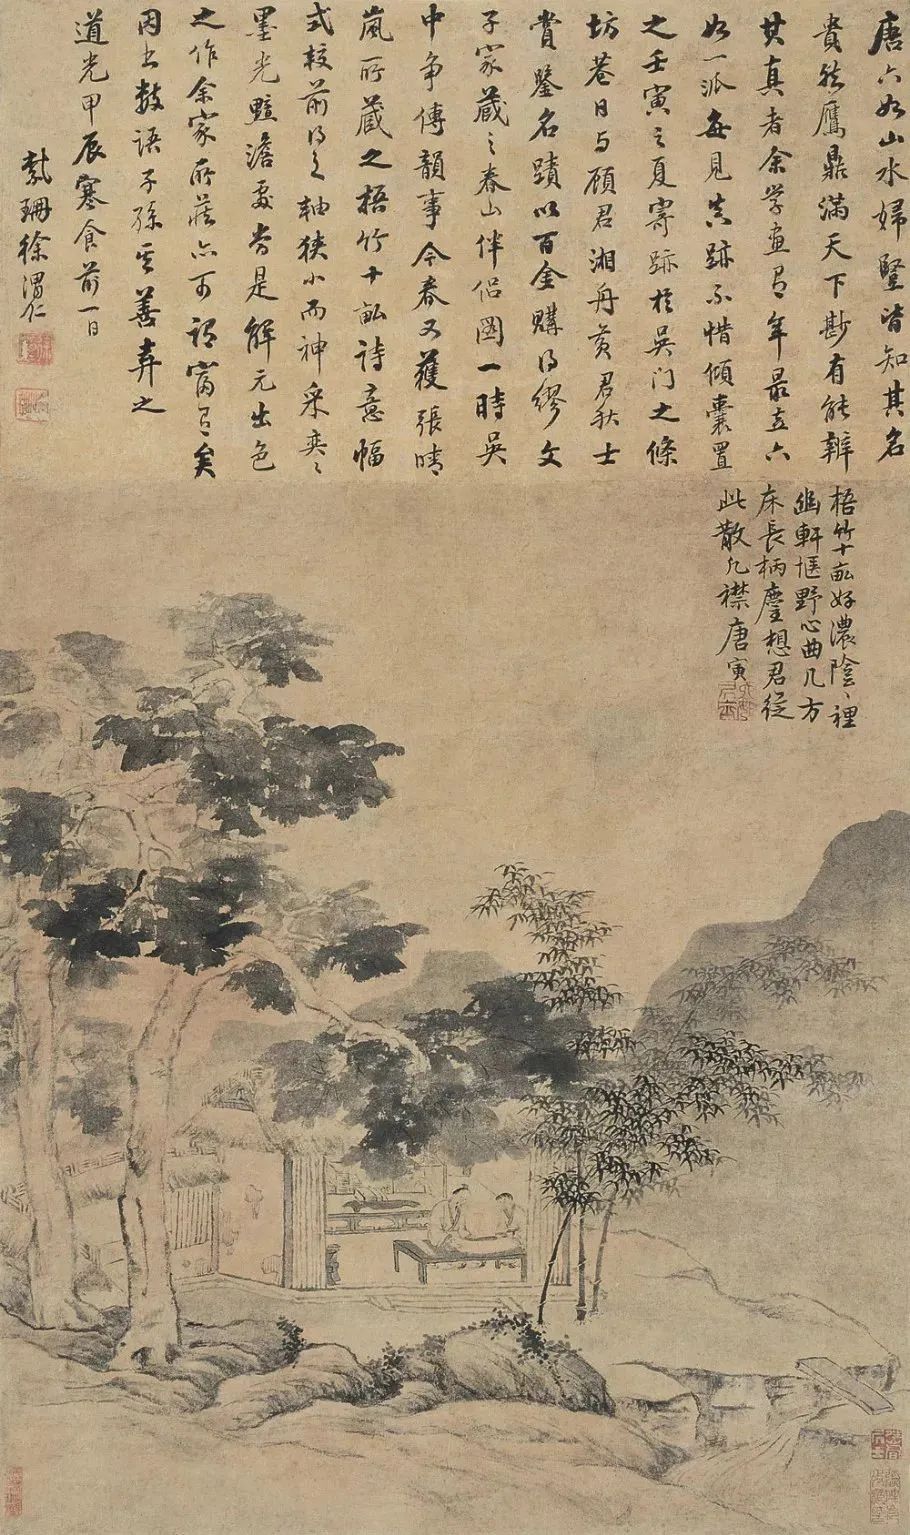 唐六如山水婦豎皆知其名
貴然鷹鼎滿天下尠有能辨
其真者余学畫有年最六
如一派每見真跡不惜傾囊置
之壬寅之夏寄跡於吳门之條
坊巷日与顧君湘舟黄君秋士
賞鑒名蹟以百金購得繆文
子家藏之春山伴侣圖一時吳
中争傳韻事今春又獲張晴
嵐所藏之梧竹十畝詩意幅
式較前得之軸狹小而神采奕〻
墨光黯澹處是解元出色
之作余家所藏亦可謂富有矣
因書數語子孫其善弆之
道光甲辰寒食前一日
紫珊徐渭仁
梧竹十畝好濃陰〻裡
幽軒愜野心曲几方
床長柄麈想君從
此散凡襟唐寅